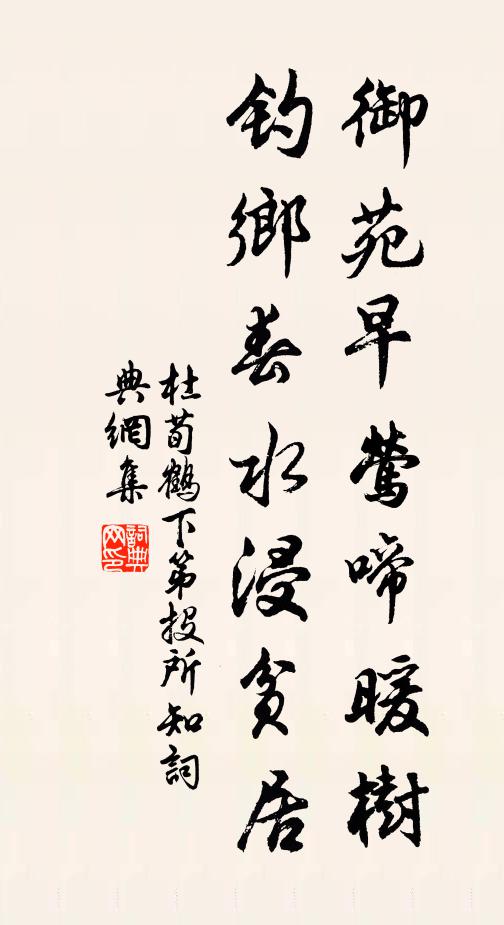 御苑早鶯啼暖樹
釣鄉春水浸貧居
杜荀鶴下第投所知詞
典網集
詞典網印